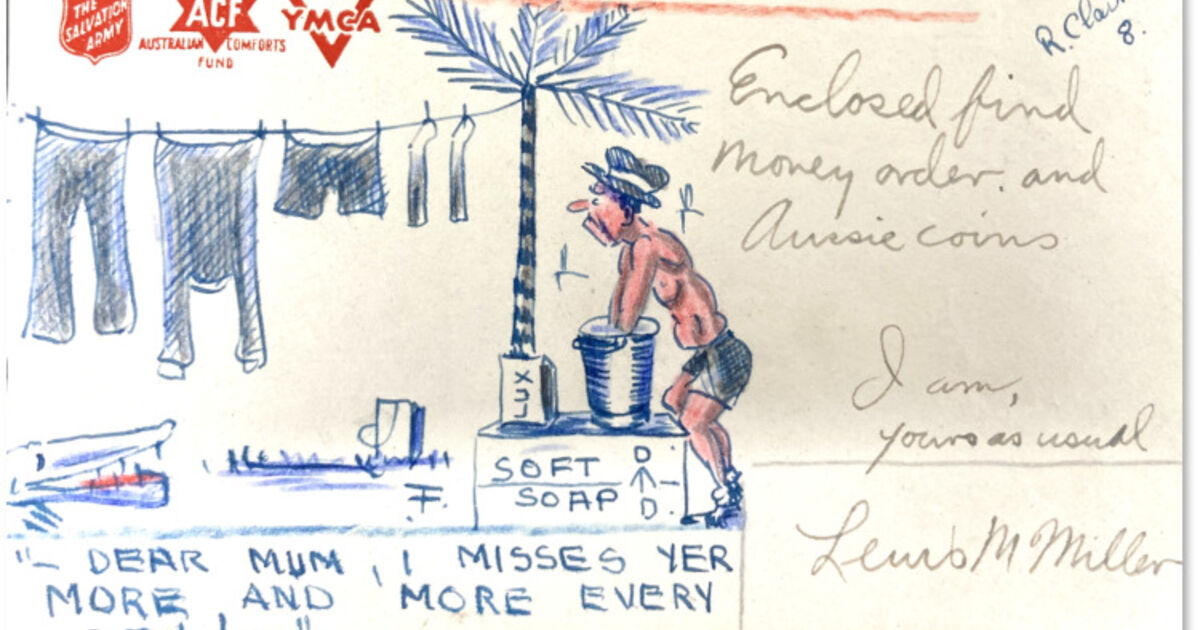 THE
SALVATION
ARMY
ACF
AUSTRALIAN COMFORTS
FUND
YMCA
8.
Enclosed find
money order. and
Aussie coins
LUX
I am,
yours as usual
SOFT
SOAP
D
D.
F.
Lewis M Miller
"— DEAR MUM, I MISSES YER
MORE, AND MORE EVERY